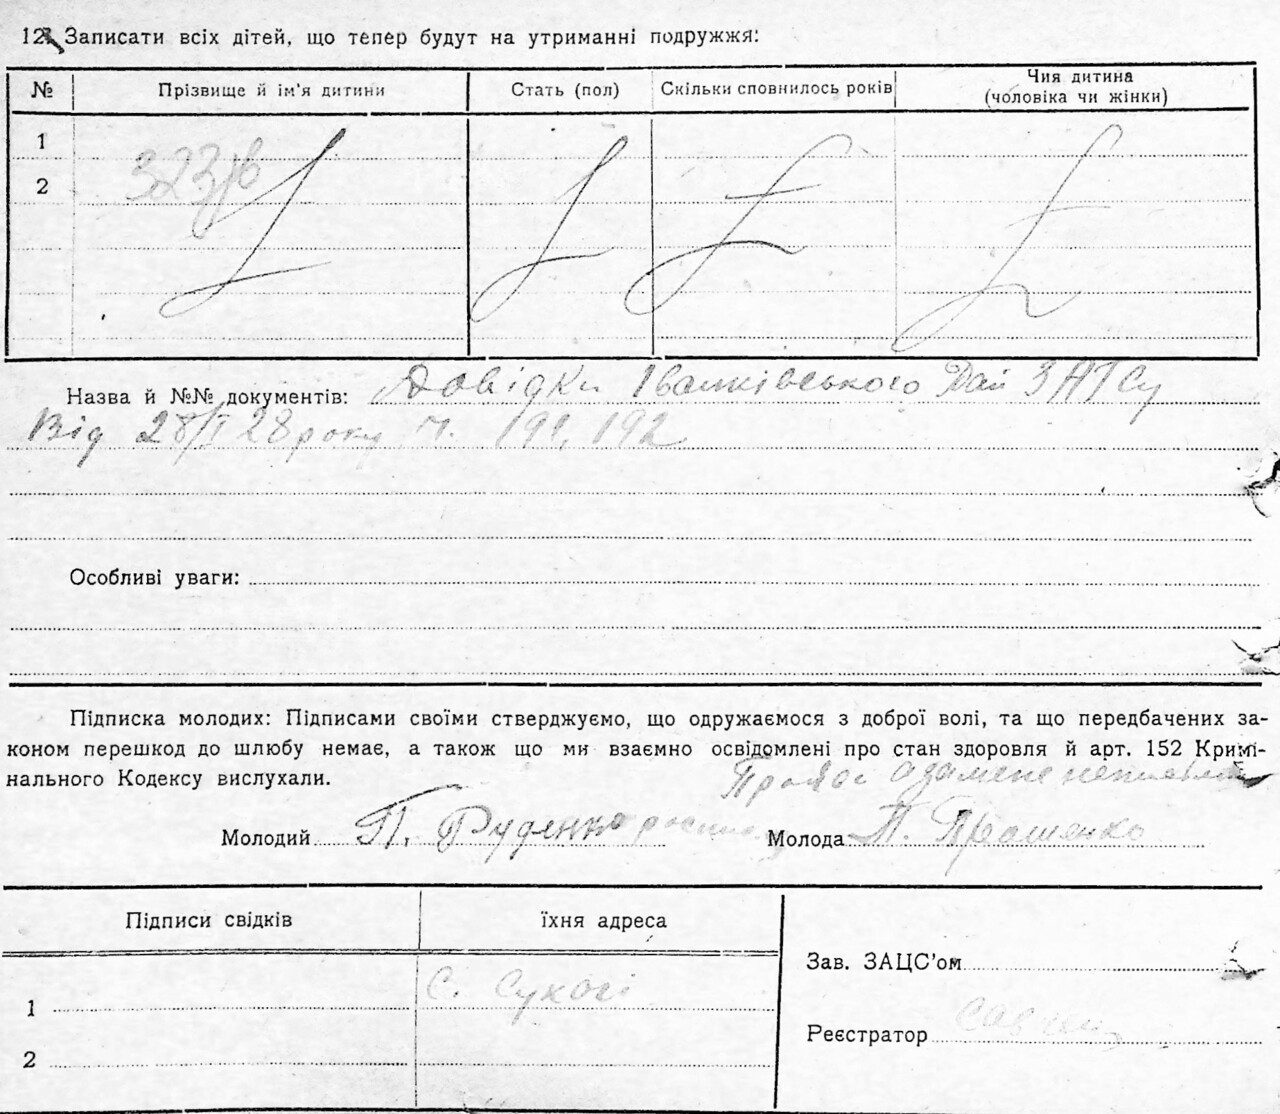 12. Записати всіх дітей, що тепер будут на утриманні подружжя:
№ Прізвище й ім'я дитини Стать (пол) Скільки сповнилось років Чия дитина
(чоловіка чи жінки)
1
2
323/в
Назва й №№ документів: Довідки Іванківського Рай ЗАГСу
Від 28/I 28 року ч. 191, 192
Особливі уваги:
Підписка молодих: Підписами своїми стверджуємо, що одружаємося з доброї волі, та що передбачених за-
коном перешкод до шлюбу немає, а також що ми взаємно освідомлені про стан здоровля й арт. 152 Кримі-
нального Кодексу вислухали.
Молодий П. Руденко Молода П.
Підписи свідків їхня адреса
Зав. ЗАЦС'ом
1 с.
Реєстратор
2